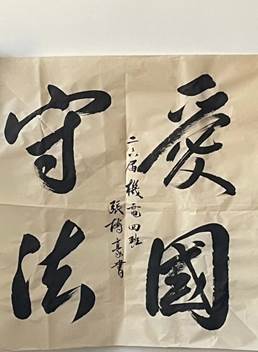 愛國
守法
二六届機電四班
張 豪書